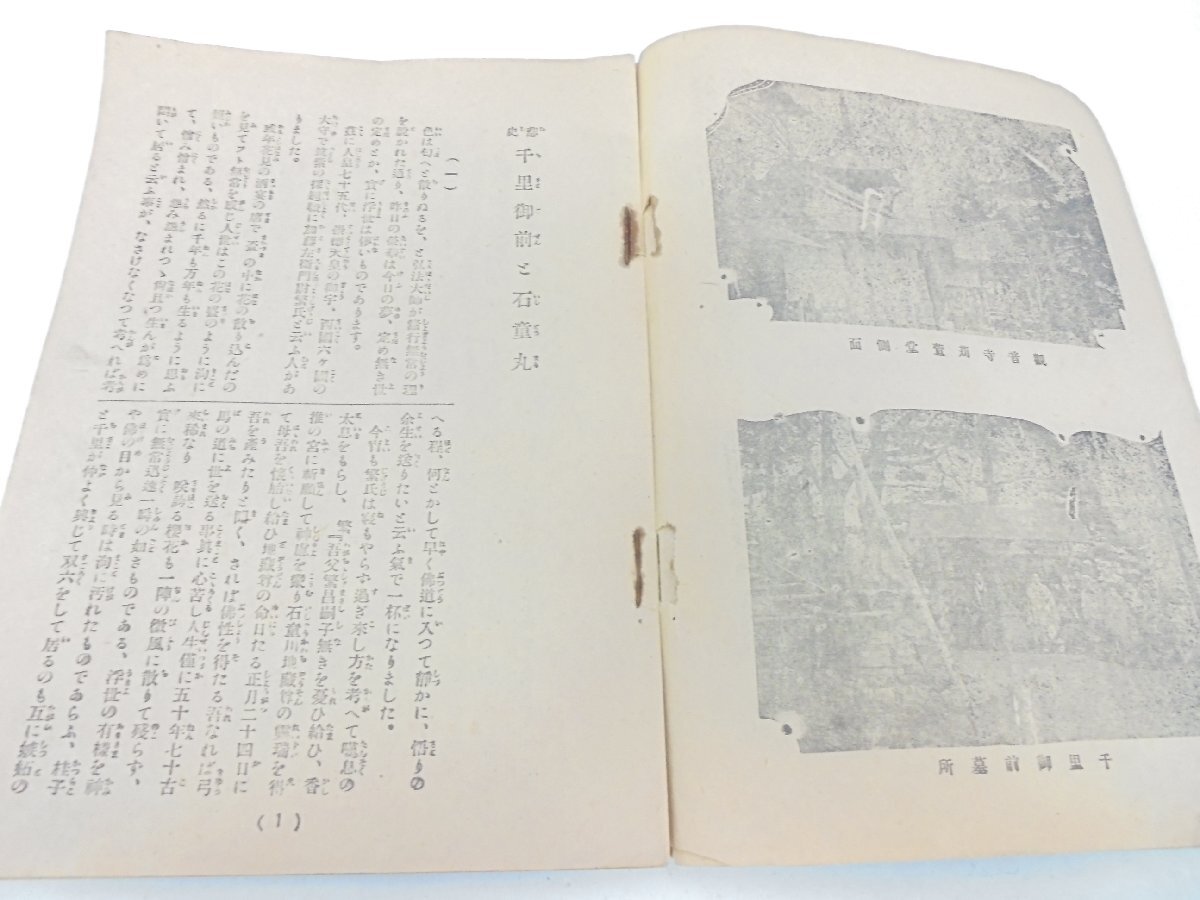 觀音寺苅萱堂側面
千里御前墓所
悲史
千里御前と石童丸
(一)
色は匂へど散りぬるを、と弘法大師が諸行無常の理
を說かれた通り、昨日の榮華は今日の夢、定め無き世
の定めとか、實に浮世は儚いものであります。
茲に人皇七十五代、崇德天皇の御宇、西國六ヶ國の
大守で筑紫の探題職に加藤左衞門尉繁氏と云ふ人があ
りました。
或年花見の酒宴の席で、盃の中に花の散り込んだの
を見てフト無常を感じ人世はこの花の盛のように洵に
短いものである、然るに千年も万年も生るように思ふ
て、憎み憎まれ、怨み怨まれつゝ尙且つ生んが爲めに
働いて居ると云ふ事が、なさけなくなつて考へれば考
へる程、何とかして早く佛道に入つて靜かに、悟りの
余生を送りたいと云ふ氣で一杯になりました。
今宵も繁氏は寢もやらず過ぎ來し方を考へて嘆息の
太息をもらし、繁『吾父繁昌嗣子無きを憂ひ給ひ、香
推の宮に祈願して神慮を蒙り石童川地藏尊の靈瑞を得
て母吾を懷胎し給ひ地藏尊の命日たる正月二十四日に
吾を產みたりと聞く、されば佛性を得たる吾なれば弓
馬の道に世を送る事眞に心苦し人生僅に五十年七十古
來稀なり 咲誇る櫻花も一陣の微風に散りて殘らず、
實に無常迅速一瞬の如きものである、浮世の有樣を神
や佛の目から見る時は洵に汚れたものであらふ、桂子
と千里が仲よく興じて双六をして居るのも互に嫉妬の
(1)